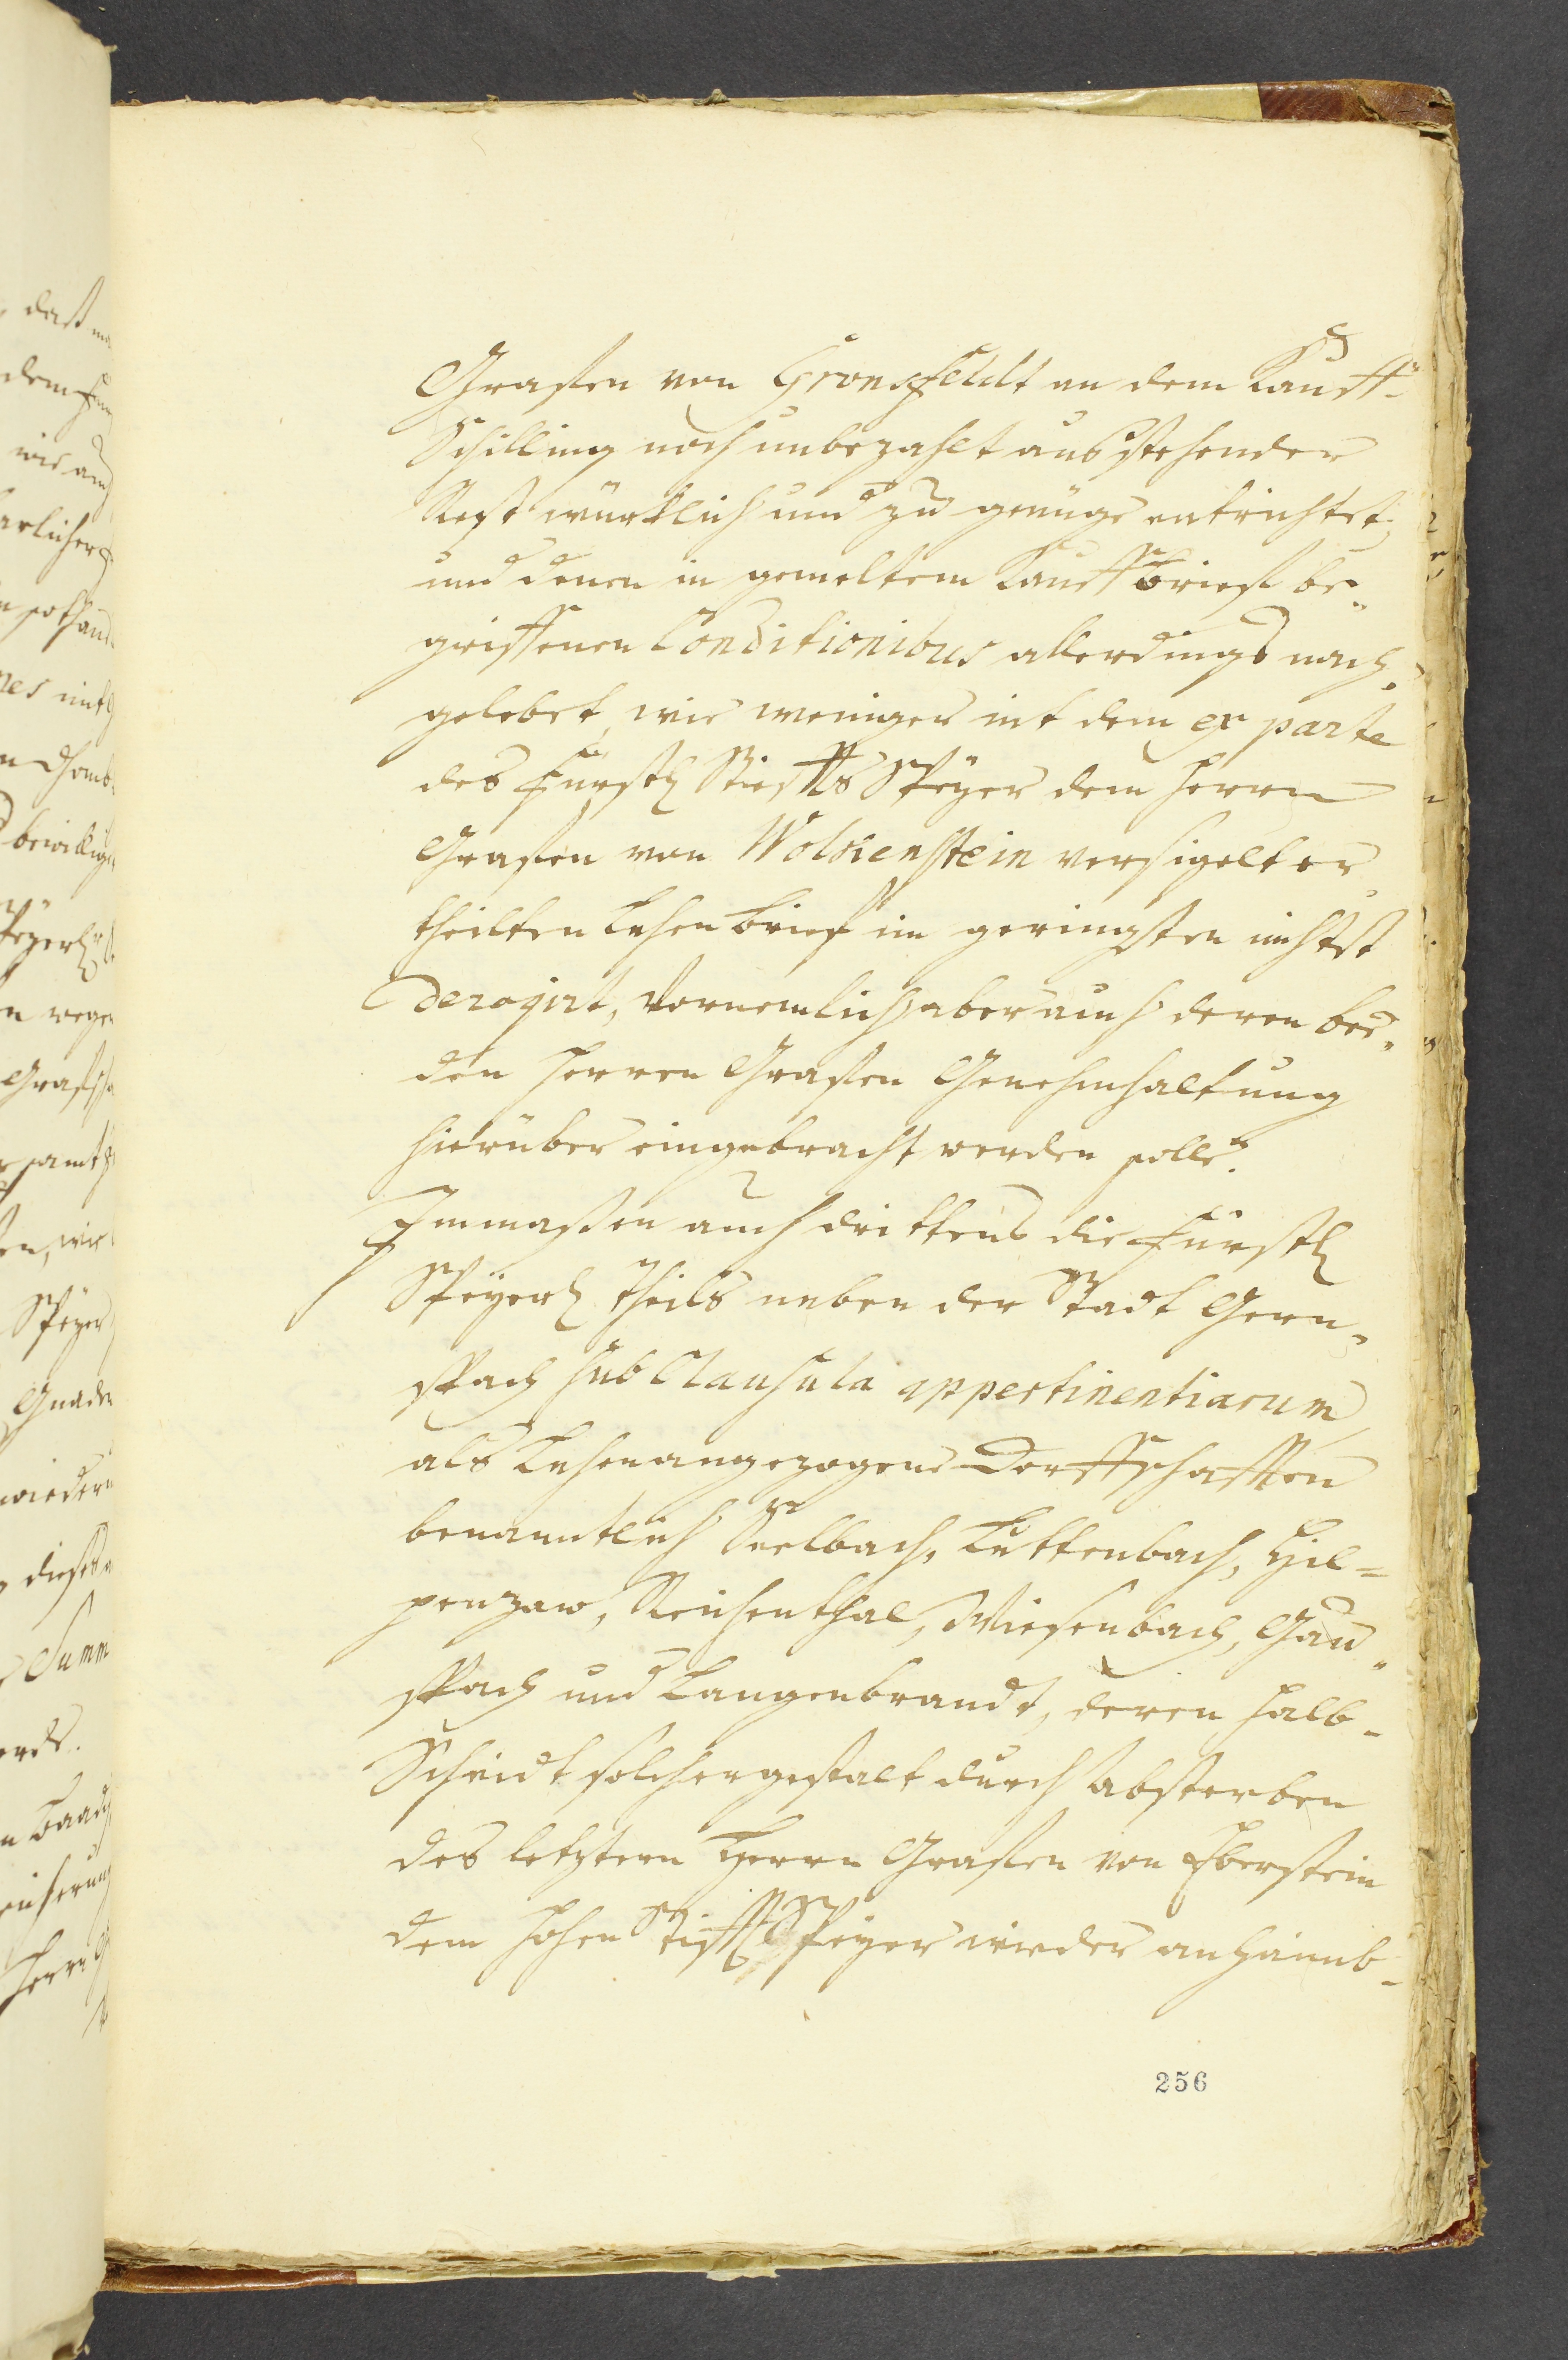 Graffen von Gronsfeldt an dem Kauff-
Schilling noch unbezahlt ausstehender
Rest würklich und zu genüge entrichtet,
und denen in gemeltem Kauffbrieff be-
griffenen Conditionibus allerdings nach-
gelebet, wie weniger mit dem ex parte
des Fürstl Stieffts Speyer dem Herrn
Graffen von Wolkenstein versigelt er-
theilten Lehenbrief im geringsten nichtst
derogirt, vornemlich aber auch deren bee-
den Herren Graffen Genehmhaltung
hierüber eingebracht werden solle.
Immassen auch drittens die Fürstl
Speyerl Theils neben der Stadt Gern-
spach sub Clausula appertinentiarum
als Lehen angezogene Dorffschafften
benanntlich Seelbach, Luttenbach, Hil-
penzaw, Reichenthal, Wiesenbach, Gau-
spach und Langenbrandt, deren halb-
Scheidt solchergestalt durch Absterben
des letztern Herrn Graffen von Eberstein
dem hohen Stifft Speyer wieder anhaimb-
256
daß
wie
bewillig
Speyer
Gnaden
wiederu
Summ